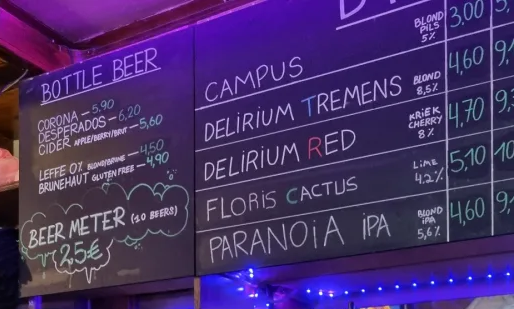 BOTTLE BEER
CORONA – 5,90
DESPERADOS – 6,20
CIDER APPLE/BERRY/BRUT – 5,60
LEFFE 0% BLOND/BRUNE – 4,50
BRUNEHAUT GLUTEN FREE – 4,90
BEER METER (10 BEERS)
25€
CAMPUS BLOND PILS 5% 3,00
DELIRIUM TREMENS BLOND 8,5% 4,60
DELIRIUM RED KRIEK CHERRY 8% 4,70
FLORIS CACTUS LIME 4.2% 5,10
PARANOIA IPA BLOND IPA 5,6% 4,60